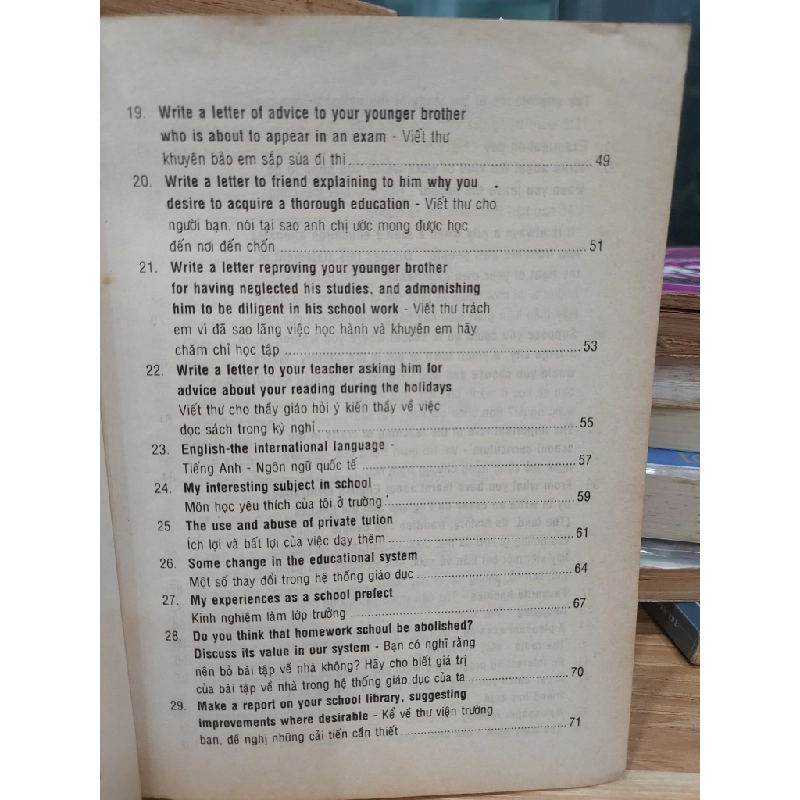 19. Write a letter of advice to your younger brother
who is about to appear in an exam - Viết thư
khuyên bảo em sắp sửa đi thi.......49
20. Write a letter to friend explaining to him why you
desire to acquire a thorough education - Viết thư cho
người bạn, nói tại sao anh chị ước mong được học
đến nơi đến chốn.......51
21. Write a letter reproving your younger brother
for having neglected his studies, and admonishing
him to be diligent in his school work - Viết thư trách
em vì đã sao lãng việc học hành và khuyên em hãy
chăm chỉ học tập.......53
22. Write a letter to your teacher asking him for
advice about your reading during the holidays
Viết thư cho thầy giáo hỏi ý kiến thầy về việc
đọc sách trong kỳ nghỉ.......55
23. English-the international language -
Tiếng Anh - Ngôn ngữ quốc tế.......57
24. My interesting subject in school
Môn học yêu thích của tôi ở trường.......59
25 The use and abuse of private tution
Ích lợi và bất lợi của việc dạy thêm.......61
26. Some change in the educational system
Một số thay đổi trong hệ thống giáo dục.......64
27. My experiences as a school prefect
Kinh nghiệm làm lớp trưởng.......67
28. Do you think that homework schoul be abolished?
Discuss its value in our system - Bạn có nghĩ rằng
nên bỏ bài tập về nhà không? Hãy cho biết giá trị
của bài tập về nhà trong hệ thống giáo dục của ta.......70
29. Make a report on your school library, suggesting
improvements where desirable - Kể về thư viện trường
bạn, đề nghị những cải tiến cần thiết.......71